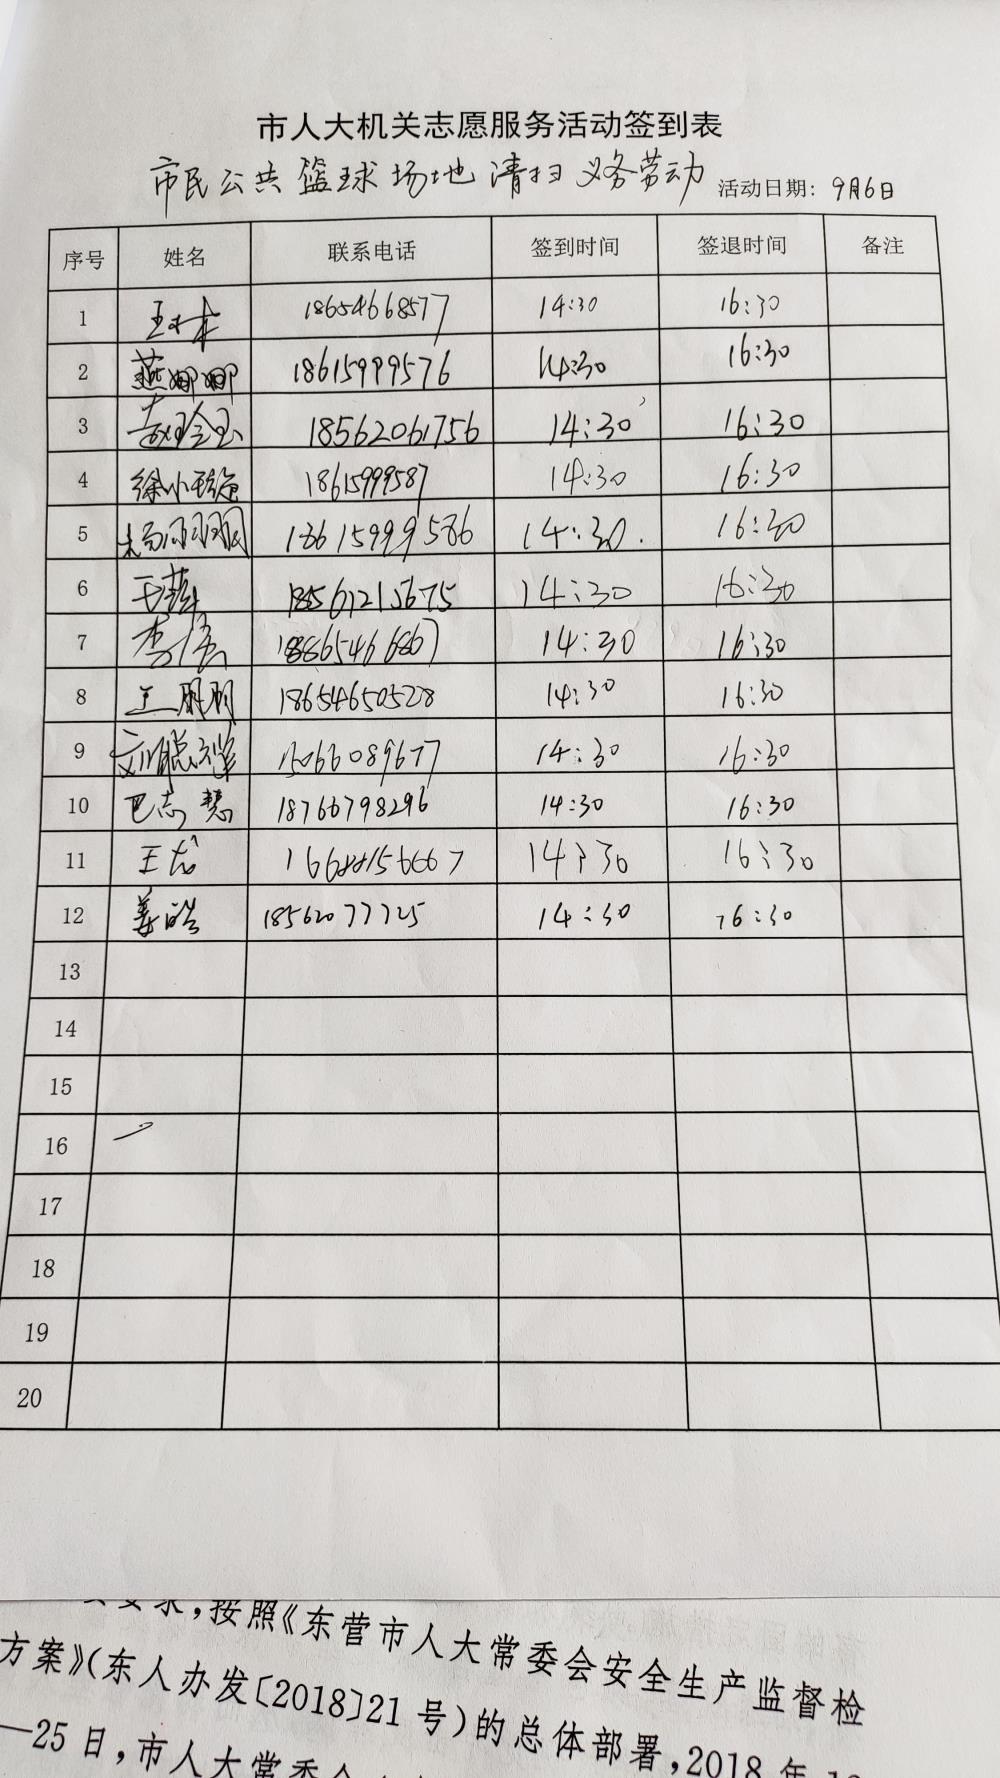 市人大机关志愿服务活动签到表
市民公共篮球场地清扫义务劳动 活动日期: 9月6日
序号 姓名 联系电话 签到时间 签退时间 备注
1 18654668577 14:30 16:30
2 燕娜娜 18615999576 14:30 16:30
3 18562061756 14:30 16:30
4 徐小 18615999587 14:30 16:30
5 18615999586 14:30. 16:30
6 14:30 16:30
7 李 18886546867 14:30 16:30
8 王朋朋 18654650528 14:30 16:30
9 15066089677 14:30 16:30
10 巴志慧 18766798296 14:30 16:30
11 王 14:30 16:30
12 姜皓 18562077725 14:30 16:30
13
14
15
16
17
18
19
20
求,按照《东营市人大常委会安全生产监督检
方案》(东人办发〔2018〕21号)的总体部署,2018年
—25日,市人大常委会